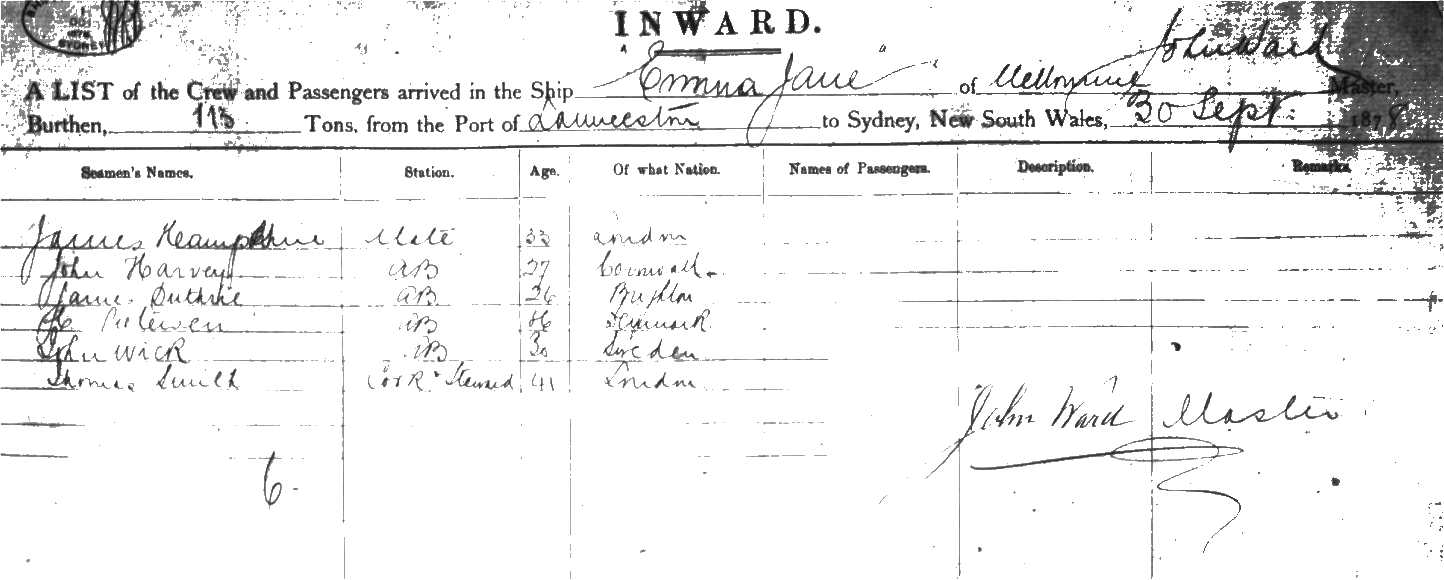 SYDNEY
INWARD.
A LIST of the Crew and Passengers arrived in the Ship "Emma Jane" of Melbourne John Ward Master,
Burthen, 113 Tons, from the Port of Launceston to Sydney, New South Wales, 30 Sept: 1878
Seamen's Names. Station. Age. Of what Nation. Names of Passengers. Description. Remarks.
James Mate 33 London
John Harvey AB 27 Cornwall
James Duthrie AB 26 Brighton
Petersen AB Denmark
John Wick AB 30 Sweden
Thomas Smith Cook & Steward 41 London
John Ward Master
6